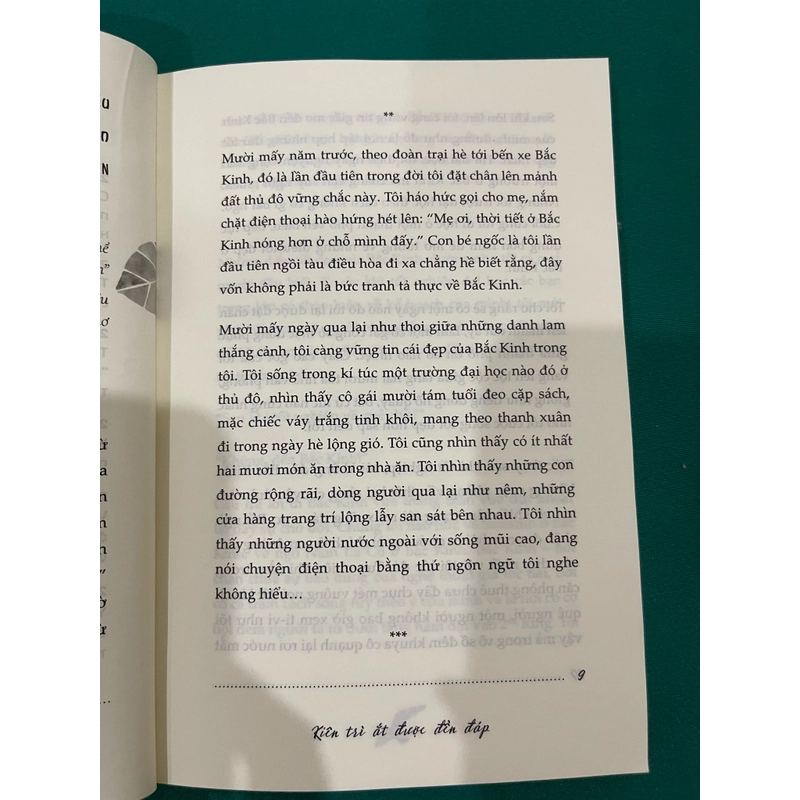 **
Mười mấy năm trước, theo đoàn trại hè tới bến xe Bắc
Kinh, đó là lần đầu tiên trong đời tôi đặt chân lên mảnh
đất thủ đô vững chắc này. Tôi háo hức gọi cho mẹ, nắm
chặt điện thoại hào hứng hét lên: “Mẹ ơi, thời tiết ở Bắc
Kinh nóng hơn ở chỗ mình đấy.” Con bé ngốc là tôi lần
đầu tiên ngồi tàu điều hòa đi xa chẳng hề biết rằng, đây
vốn không phải là bức tranh tả thực về Bắc Kinh.
Mười mấy ngày qua lại như thoi giữa những danh lam
thắng cảnh, tôi càng vững tin cái đẹp của Bắc Kinh trong
tôi. Tôi sống trong kí túc một trường đại học nào đó ở
thủ đô, nhìn thấy cô gái mười tám tuổi đeo cặp sách,
mặc chiếc váy trắng tinh khôi, mang theo thanh xuân
đi trong ngày hè lộng gió. Tôi cũng nhìn thấy có ít nhất
hai mươi món ăn trong nhà ăn. Tôi nhìn thấy những con
đường rộng rãi, dòng người qua lại như nêm, những
cửa hàng trang trí lộng lẫy san sát bên nhau. Tôi nhìn
thấy những người nước ngoài với sống mũi cao, đang
nói chuyện điện thoại bằng thứ ngôn ngữ tôi nghe
không hiểu…
***
9
Kiên trì ắt được đền đáp